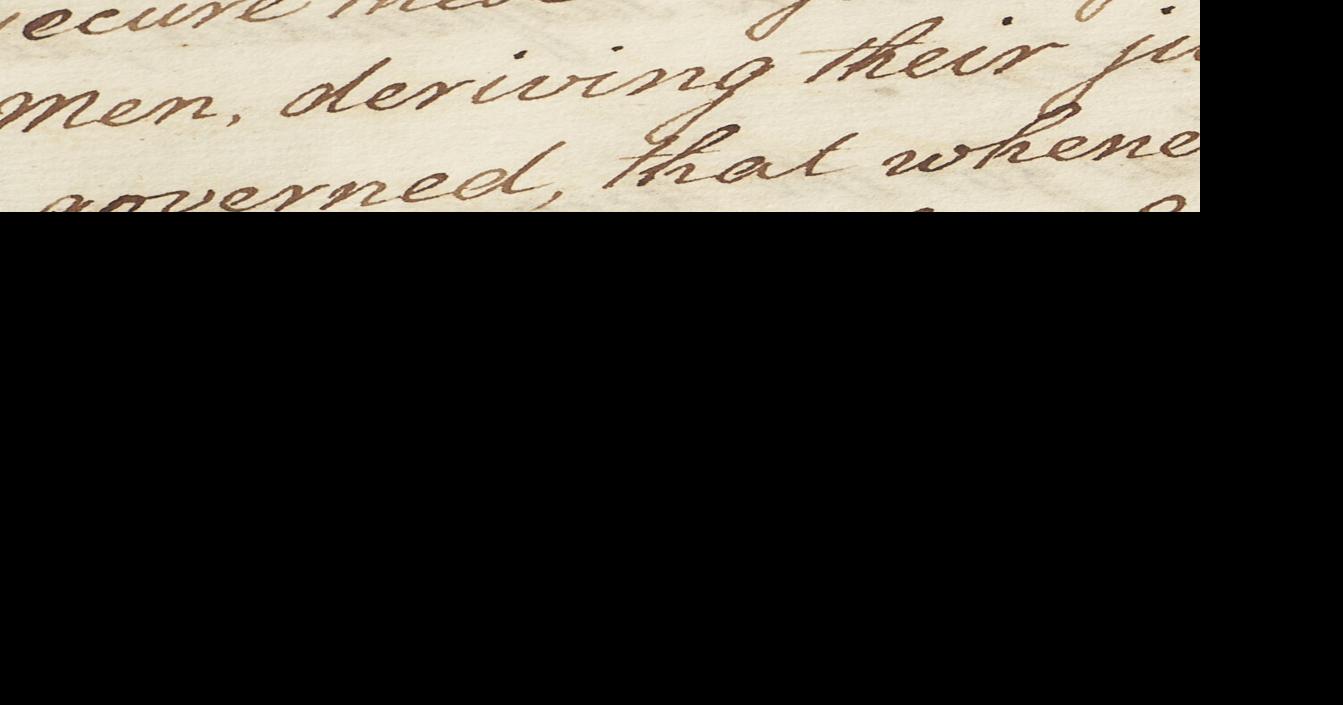 secure these
men, deriving their ju
governed, that whene